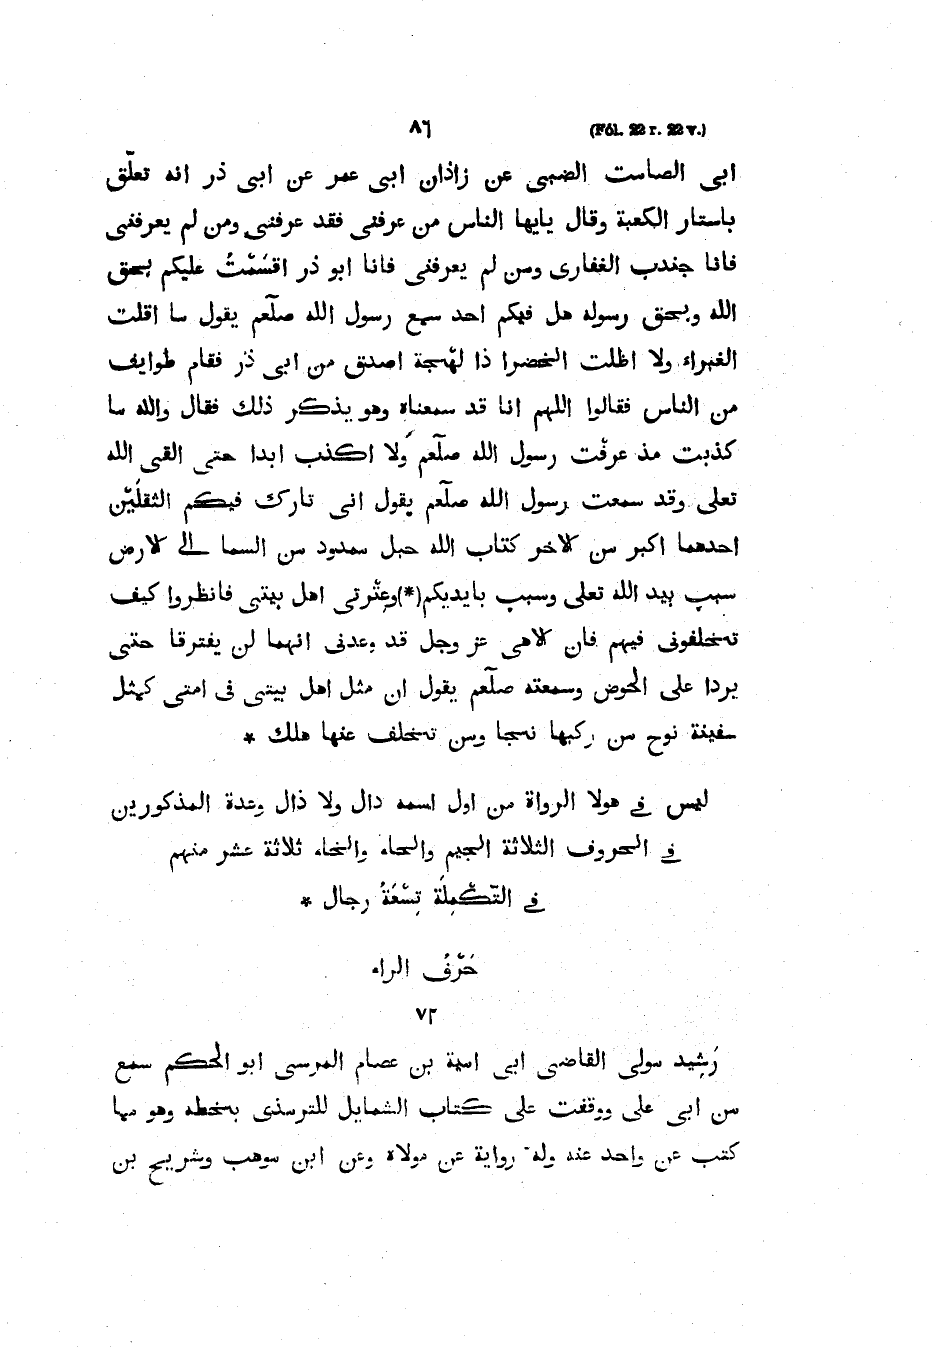 ٨٦ (Fól. 22 r. 22 v.)
ابى الصامت الضبى عن زاذان ابى عمر عن ابى ذر انه تعلّق
باستار الكعبة وقال يايها الناس من عرفنى فقد عرفنى ومن لم يعرفنى
فانا جندب الغفارى ومن لم يعرفنى فانا ابو ذر اقسَمْتُ عليكم بحق
الله وبحق رسوله هل فيكم احد سمع رسول الله صلّعم يقول ما اقلت
الغبراء ولا اظلت الخضرا ذا لهْجة اصدق من ابى ذر فقام طوايف
من الناس فقالوا اللهم انا قد سمعناه وهو يذكر ذلك فقال والله ما
كذبت مذ عرفْت رسول الله صلّعم وَلا اكذب ابدا حتى القى الله
تعلى وقد سمعت رسول الله صلّعم يقول انى تارك فيكم الثقلَيْن
احدهما اكبر من الاخر كتاب الله حبل ممدود من السما الى الارض
سبب بيد الله تعلى وسبب بايديكم(*)وعِتْرتى اهل بيتى فانظروا كيف
تخلفونى فيهم فان الاهى عز وجل قد وعدنى انهما لن يفترقا حتى
يردا على الحوض وسمعته صلّعم يقول ان مثل اهل بيتى فى امتى كمثل
سفينة نوح من ركبها نجا ومن تخلف عنها هلك *
ليس فى هولا الرواة من اول اسمه دال ولا ذال وعدة المذكورين
فى الحروف الثلاثة الجيم والحاء والخاء ثلاثة عشر منهم
فى التَّكْمِلَة تِسْعَةُ رجال *
حَرْفُ الراء
٧٢
رَشِيد مولى القاضى ابى امية بن عصام المرسى ابو الحكم سمع
من ابى على ووقفت على كتاب الشمايل للترمذى بخطه وهو مما
كتب عن واحد عنه وله رواية عن مولاه وعن ابن موهب وشريح بن